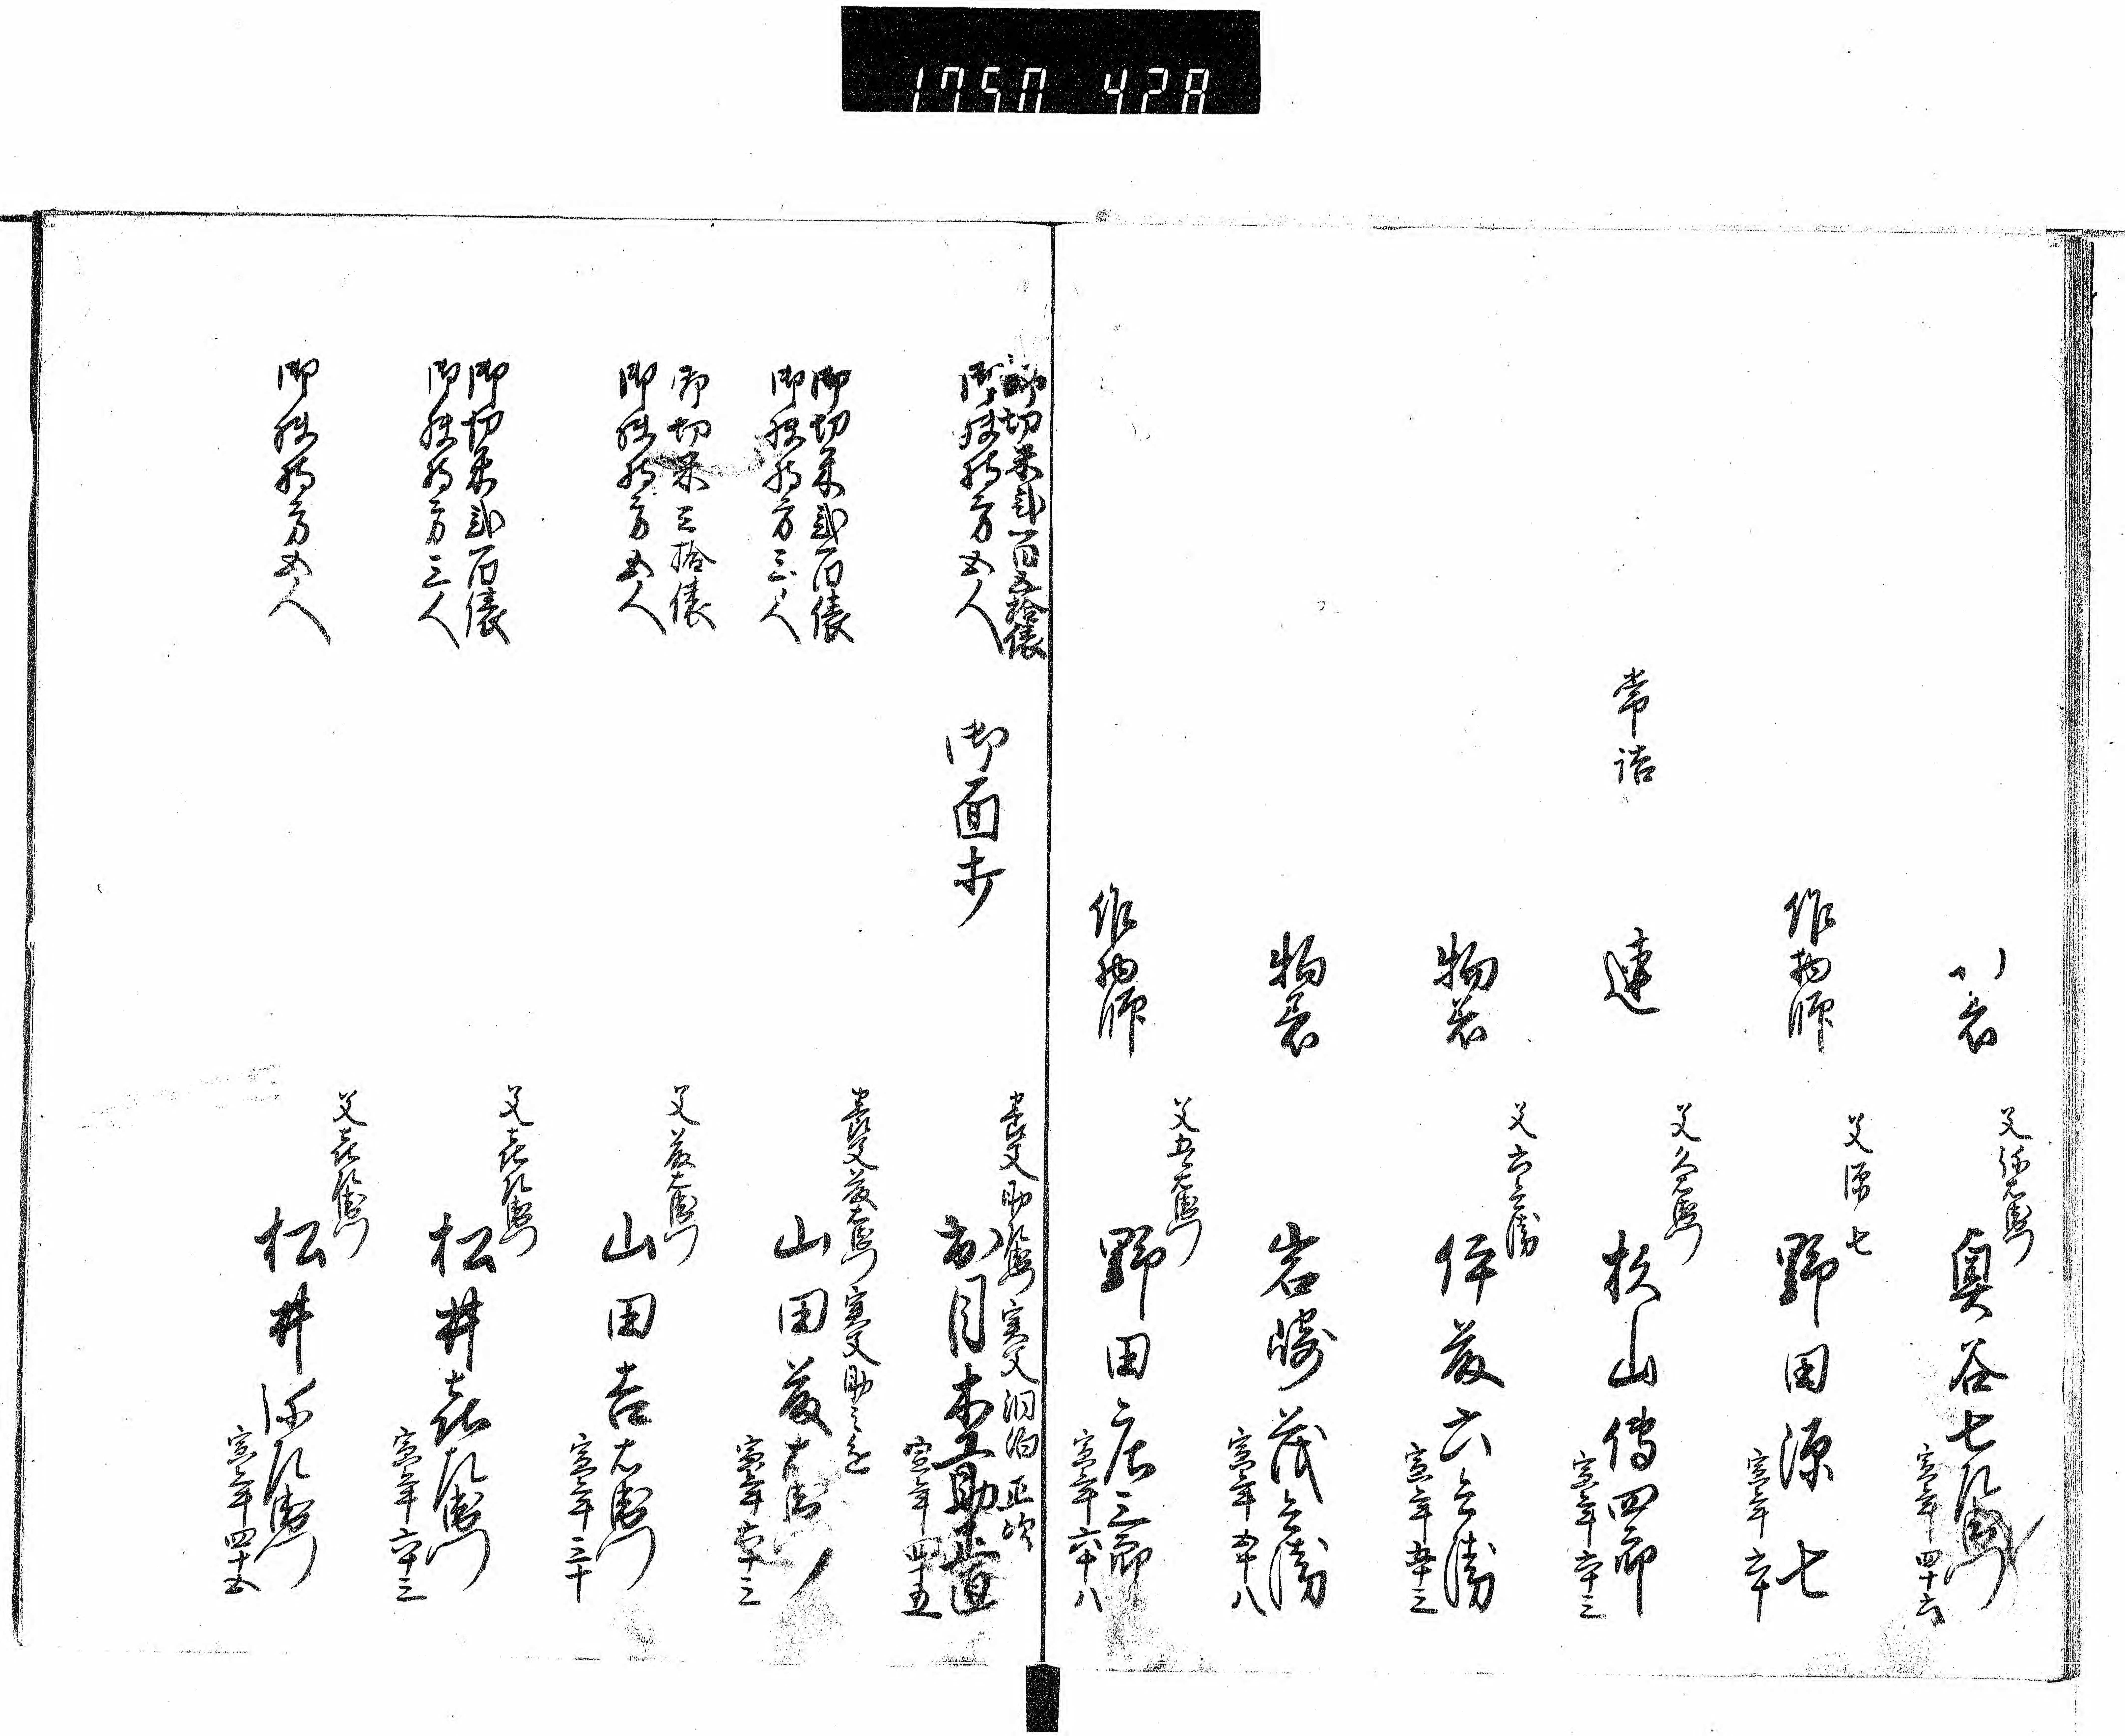 1750 428
小表
父弥右衛門
奥谷七左衛門
寅年四十六
作物師
父源七
野田源七
寅年六十
常詰
連
父久右衛門
杉山傳四郎
寅年六十三
物着
父六兵衛
伊藤六兵衛
寅年五十三
物着
岩崎茂兵衛
寅年五十八
作物師
父五右衛門
野田庄三郎
寅年六十八
御切米弐百五拾俵
御扶持方五人
御面打
養父助左衛門 実父
出目杢助正直
寅年四十五
御切米弐百俵
御扶持方三人
養父藤右衛門 実父助之進
山田藤右衛門
寅年六十三
御切米三拾俵
御扶持方五人
父藤右衛門
山田吉右衛門
寅年三十
御切米弐百俵
御扶持方三人
父喜左衛門
松井喜左衛門
寅年六十三
御扶持方五人
父喜左衛門
松井弥左衛門
寅年四十五